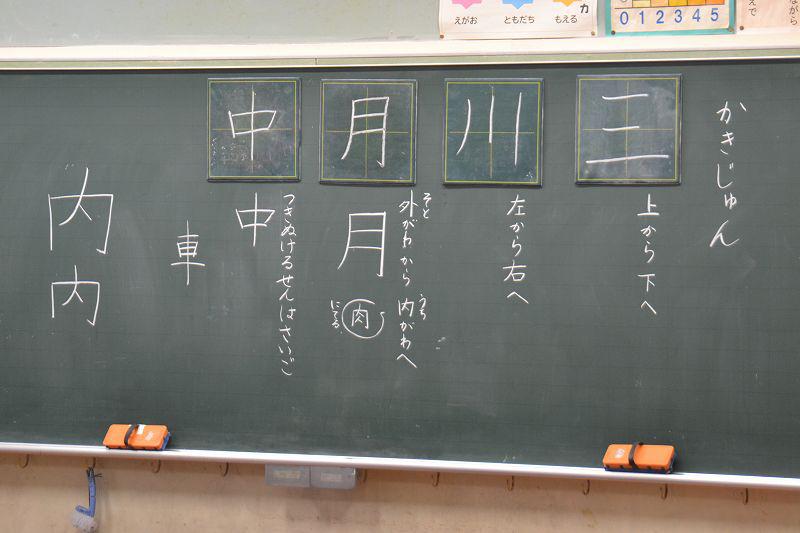 えがお
ともだち
もえる
カ
0 1 2 3 4 5
かきじゅん
三
上から下へ
川
左から右へ
月
そと
外がわから
うち
内がわへ
月
肉
にてる
中
つきぬけるせんはさいご
中
車
内
内